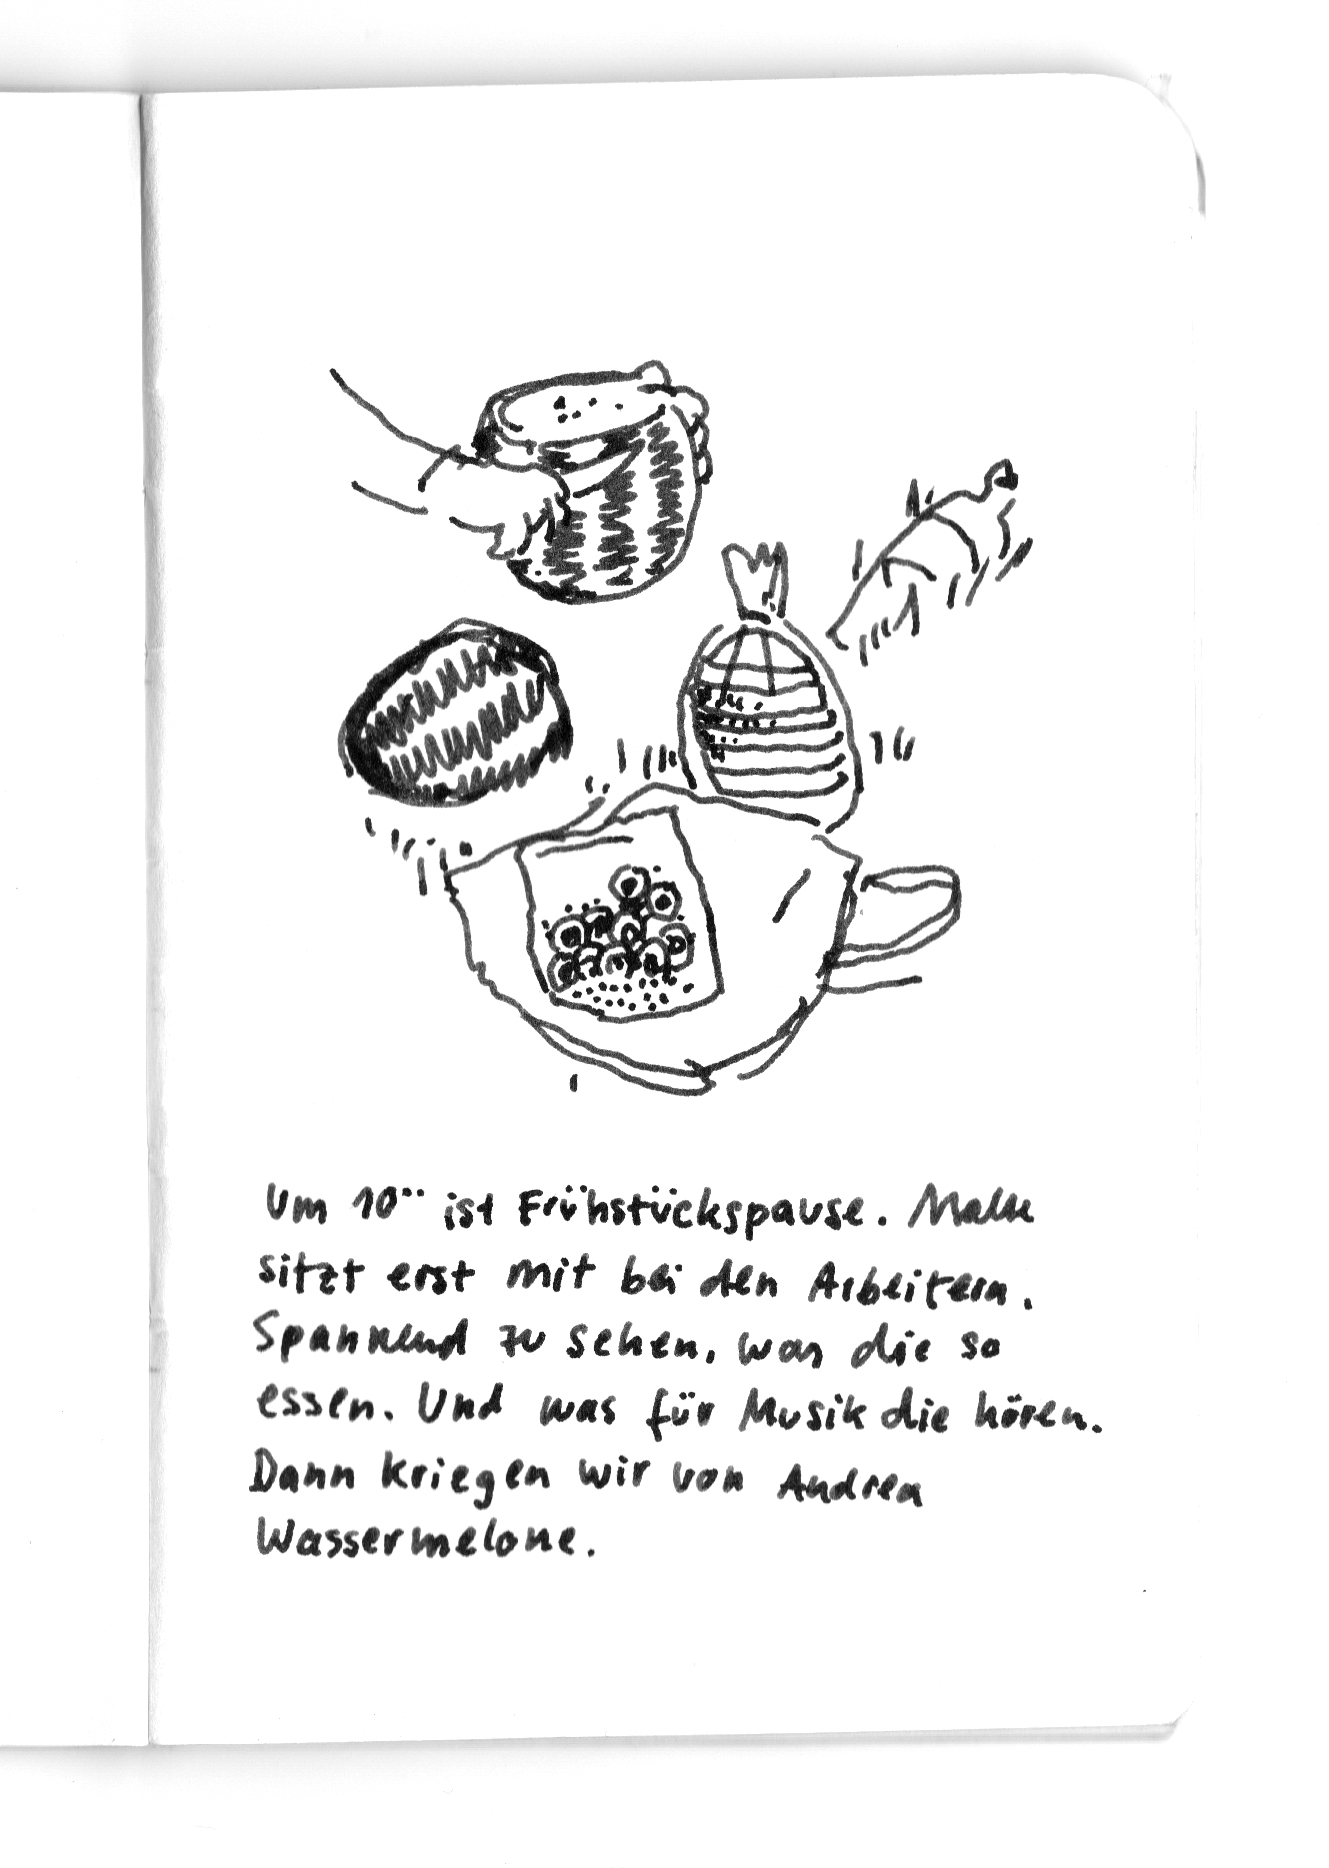 Um 10⁰⁰ ist Frühstückspause. Malte
sitzt erst mit bei den Arbeitern.
Spannend zu sehen, was die so
essen. Und was für Musik die hören.
Dann kriegen wir von Andrea
Wassermelone.